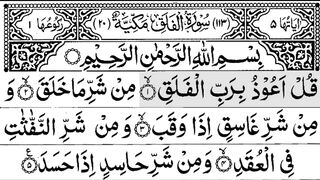 اٰیَاتُهَا ۵ ﴿۱۱۳﴾ سُوْرَةُ الْفَلَقِ مَكِّیَّةٌ ﴿۲۰﴾ رُكُوْعُهَا ۱
بِسْمِ اللّٰهِ الرَّحْمٰنِ الرَّحِیْمِ
قُلْ اَعُوْذُ بِرَبِّ الْفَلَقِ ۙ﴿۱﴾ مِنْ شَرِّ مَا خَلَقَ ۙ﴿۲﴾ وَ
مِنْ شَرِّ غَاسِقٍ اِذَا وَقَبَ ۙ﴿۳﴾ وَ مِنْ شَرِّ النَّفّٰثٰتِ
فِی الْعُقَدِ ۙ﴿۴﴾ وَ مِنْ شَرِّ حَاسِدٍ اِذَا حَسَدَ ﴿۵﴾